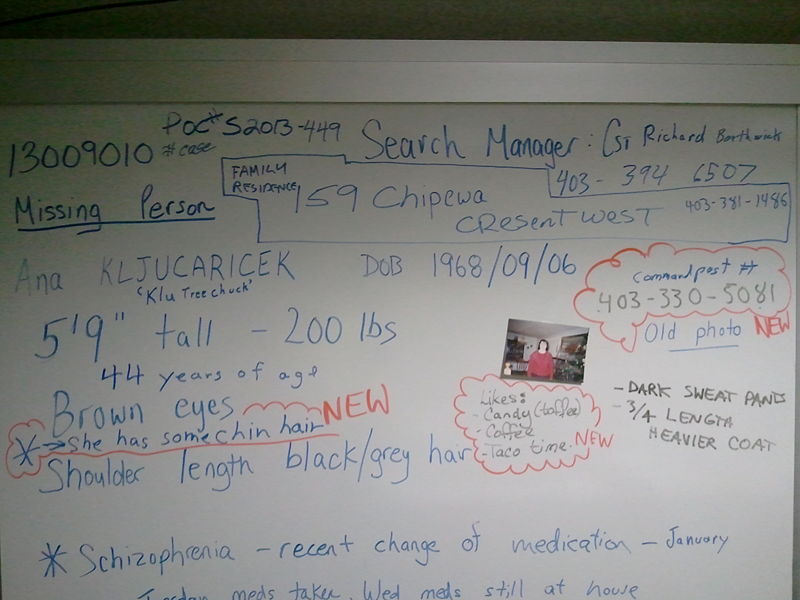 POC# S2013-449
13009010 # case
Search Manager: Cst Richard Borthwick
403- 394 6507
Missing Person
FAMILY
RESIDENCE
159 Chipewa
CResent West
403-381-1486
Ana KLJUCARICEK DOB 1968/09/06
'Klu Tree chuck'
Command post #
403-330-5081
NEW
5'9" tall - 200 lbs
Old photo
44 years of age
Brown eyes
NEW
* → She has some chin hair
Shoulder length black/grey hair
Likes:
- Candy (toffee)
- Coffee
- Taco time.
NEW
- DARK SWEAT PANTS
- 3/4 LENGTH
HEAVIER COAT
* Schizophrenia - recent change of medication - January
meds taken, Wed meds still at house